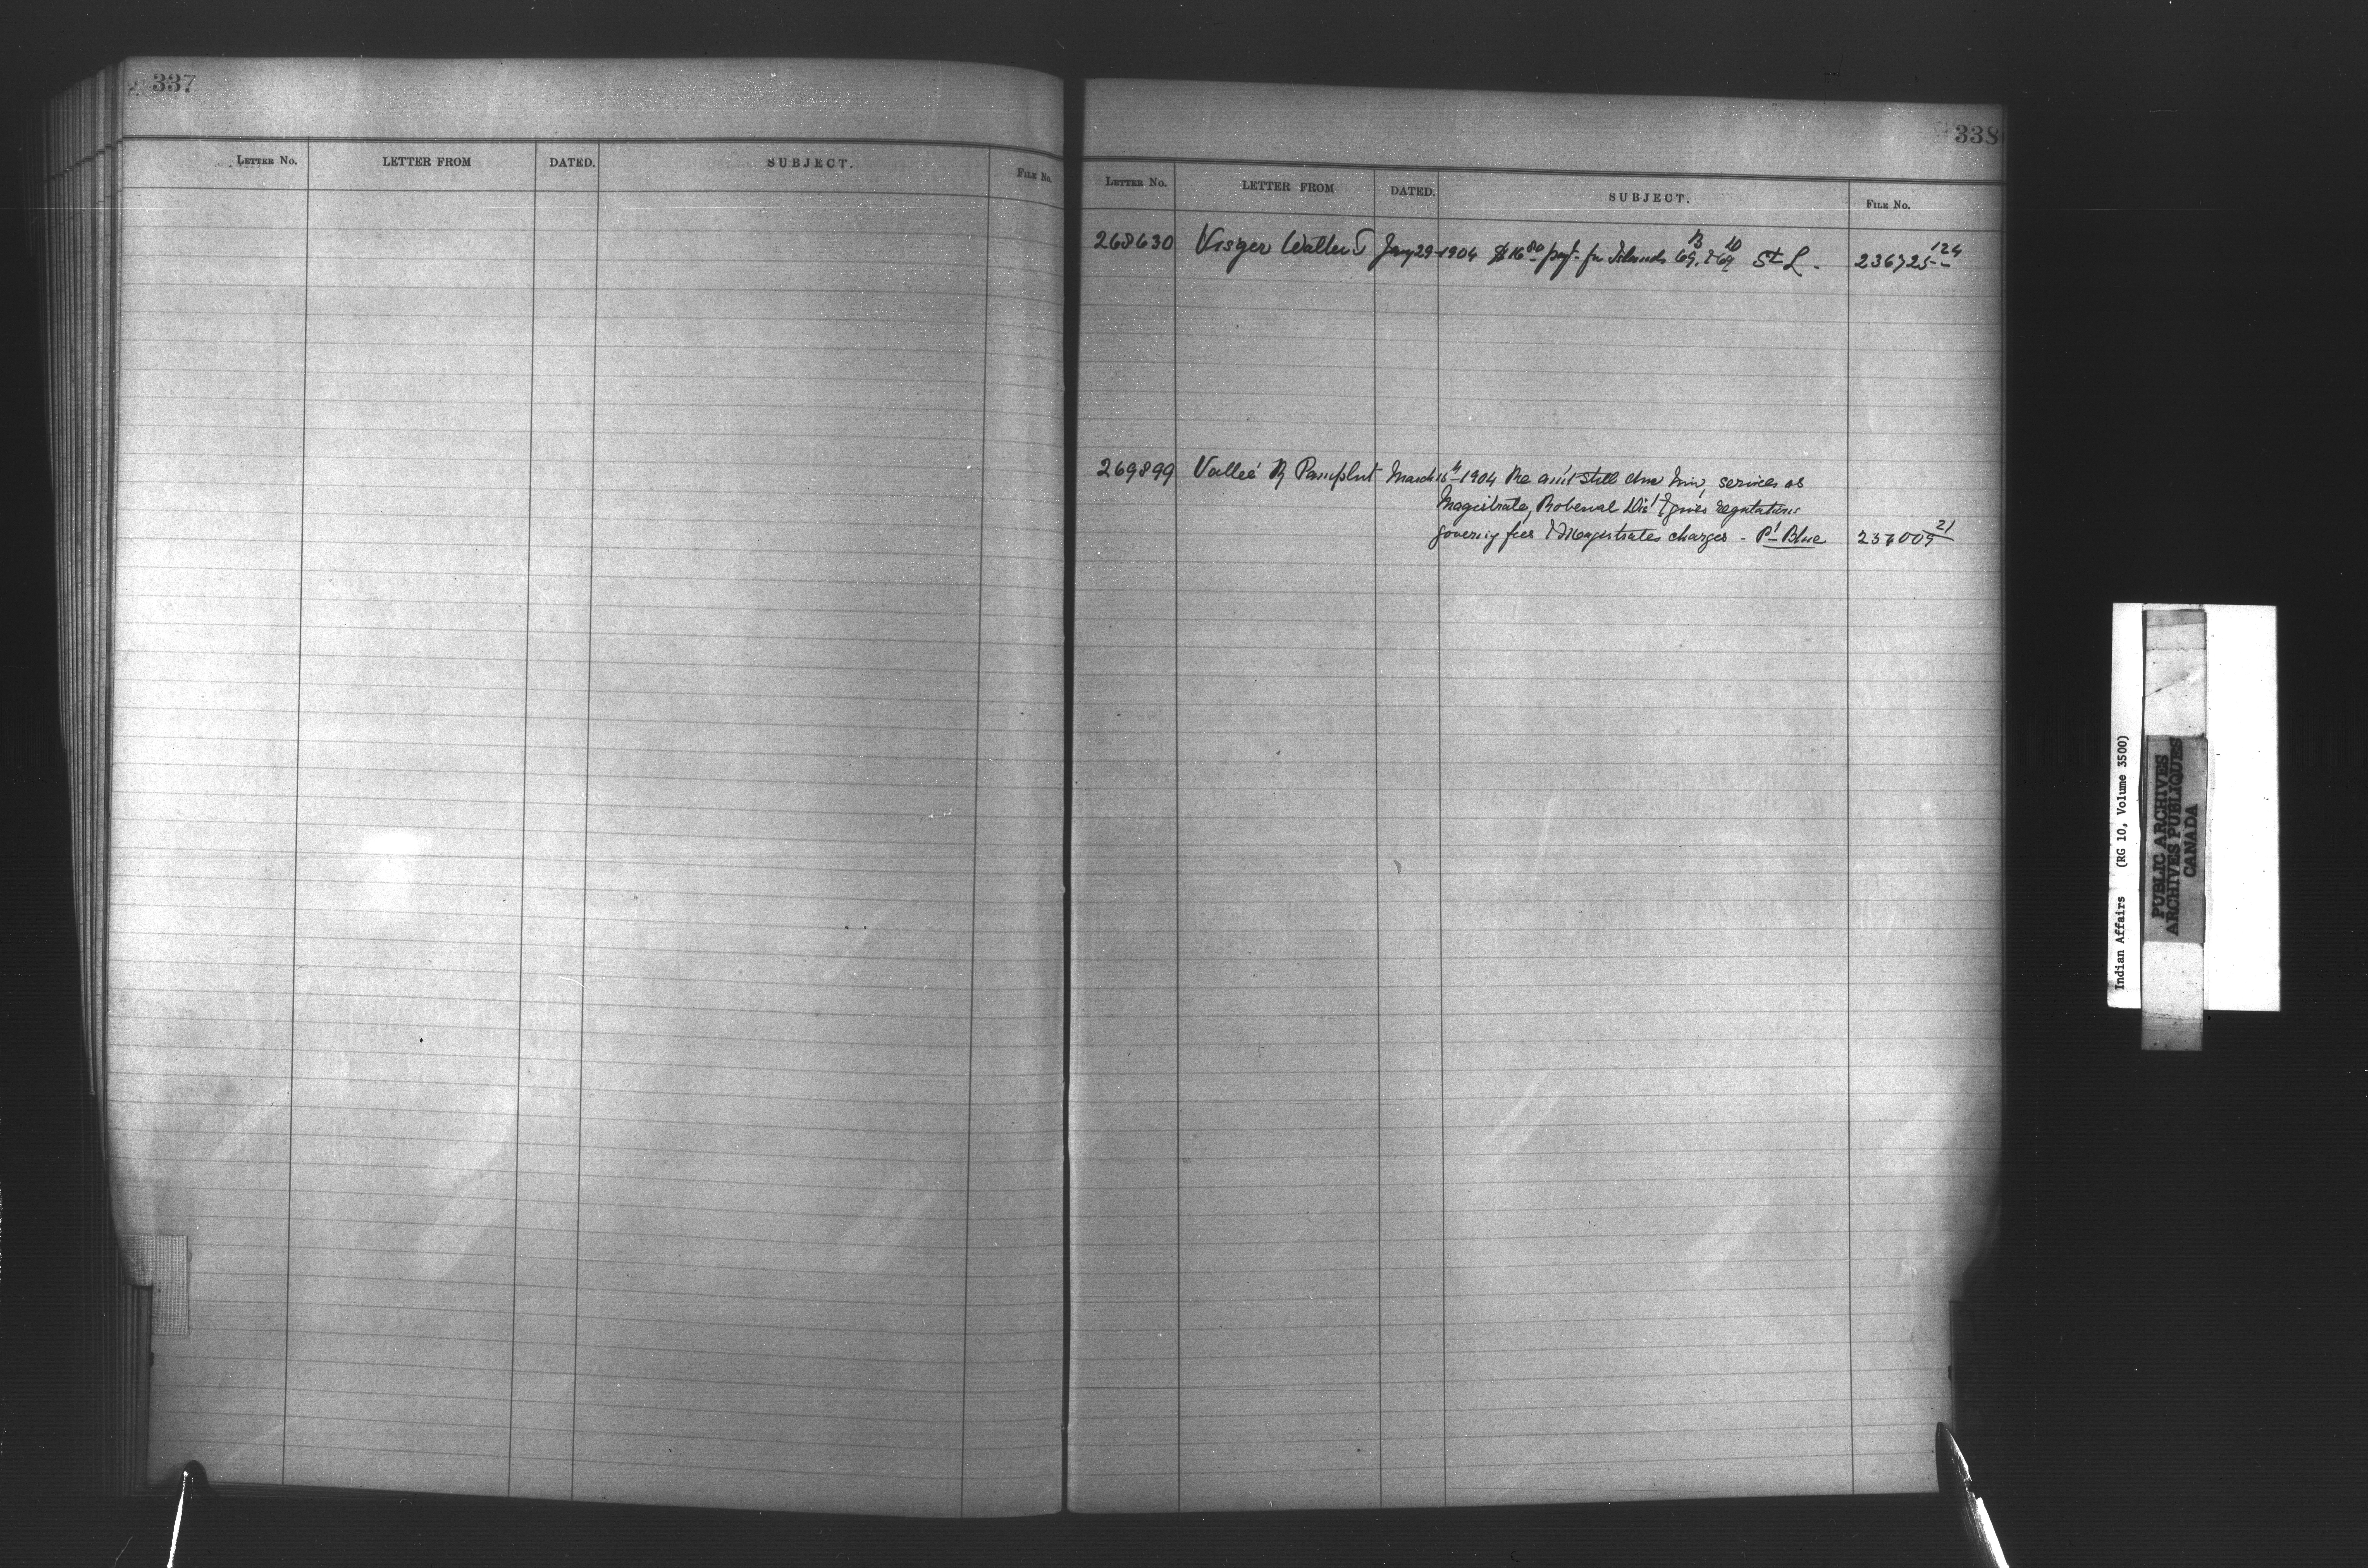 337
LETTER No. LETTER FROM DATED. SUBJECT. FILE No.
338
LETTER No. LETTER FROM DATED. SUBJECT. FILE No.
268630 Visger Walter J Jany 29-1904 $16 80 payt for Islands 69 B & 69 10 St L. 236725-124
269899 Valleé R Pamphlet March 15th 1904 Re am't still due him, services as
Magistrate, Roberval Dis't & gives regulations
governing fees & Magistrates charges - Pt Blue 236009 21
Indian Affairs (RG 10, Volume 3500)
PUBLIC ARCHIVES
ARCHIVES PUBLIQUES
CANADA